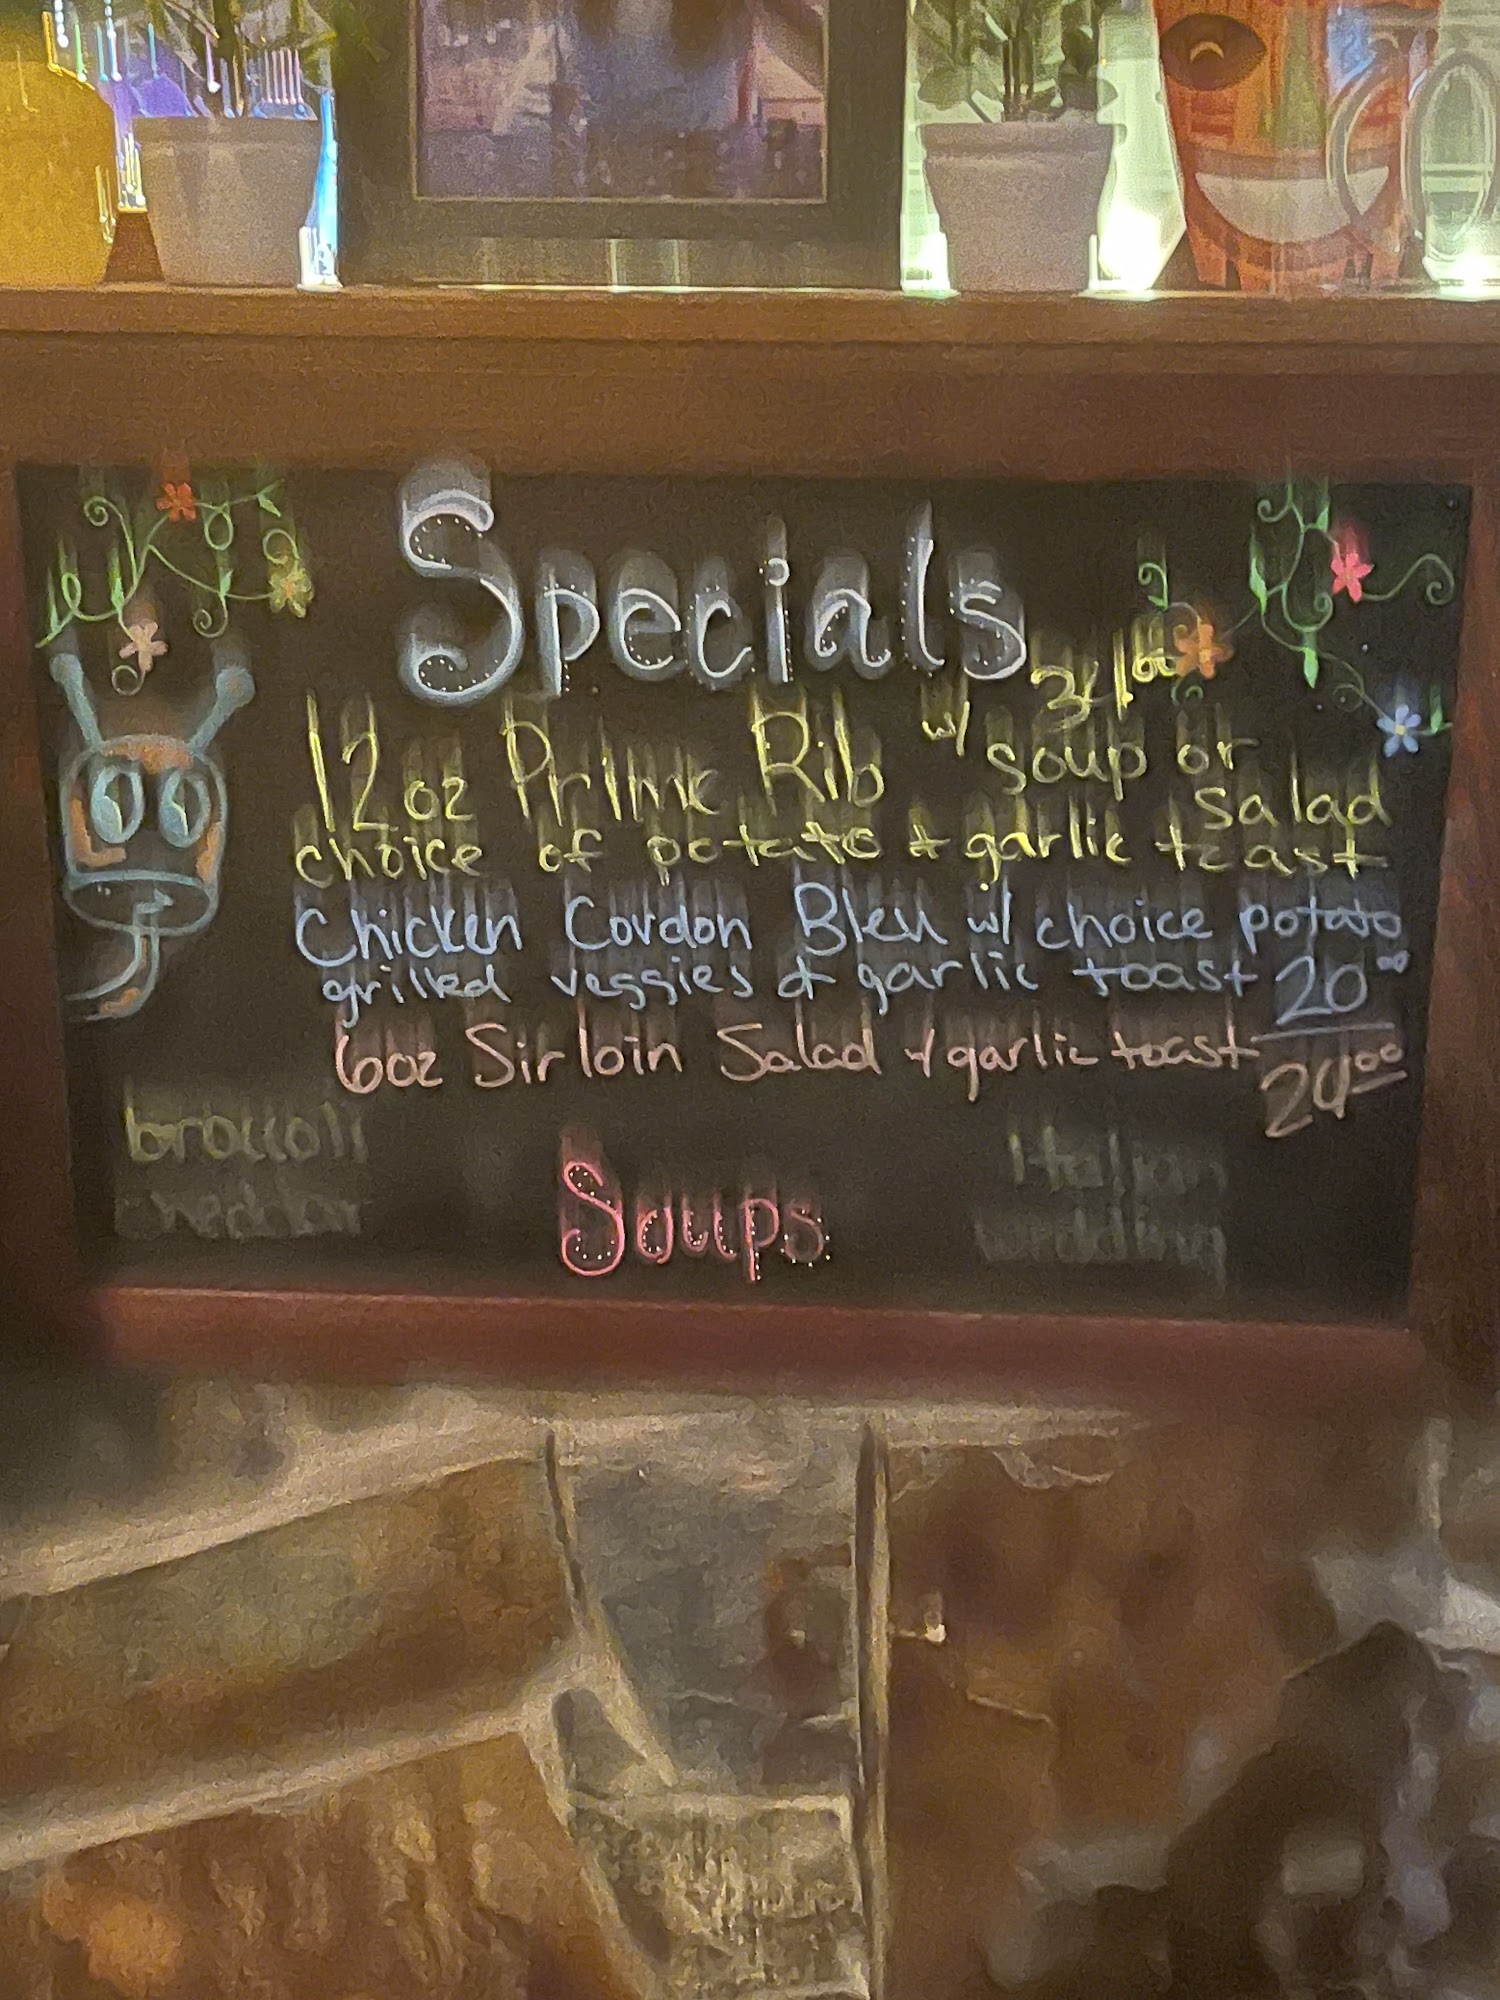 Specials
34.00
12oz Prime Rib w/ soup or
salad
choice of potato + garlic toast
Chicken Cordon Bleu w/ choice potato
grilled veggies + garlic toast 20.00
6oz Sirloin Salad w/ garlic toast
24.00
broccoli
cheddar
Soups
Italian
wedding